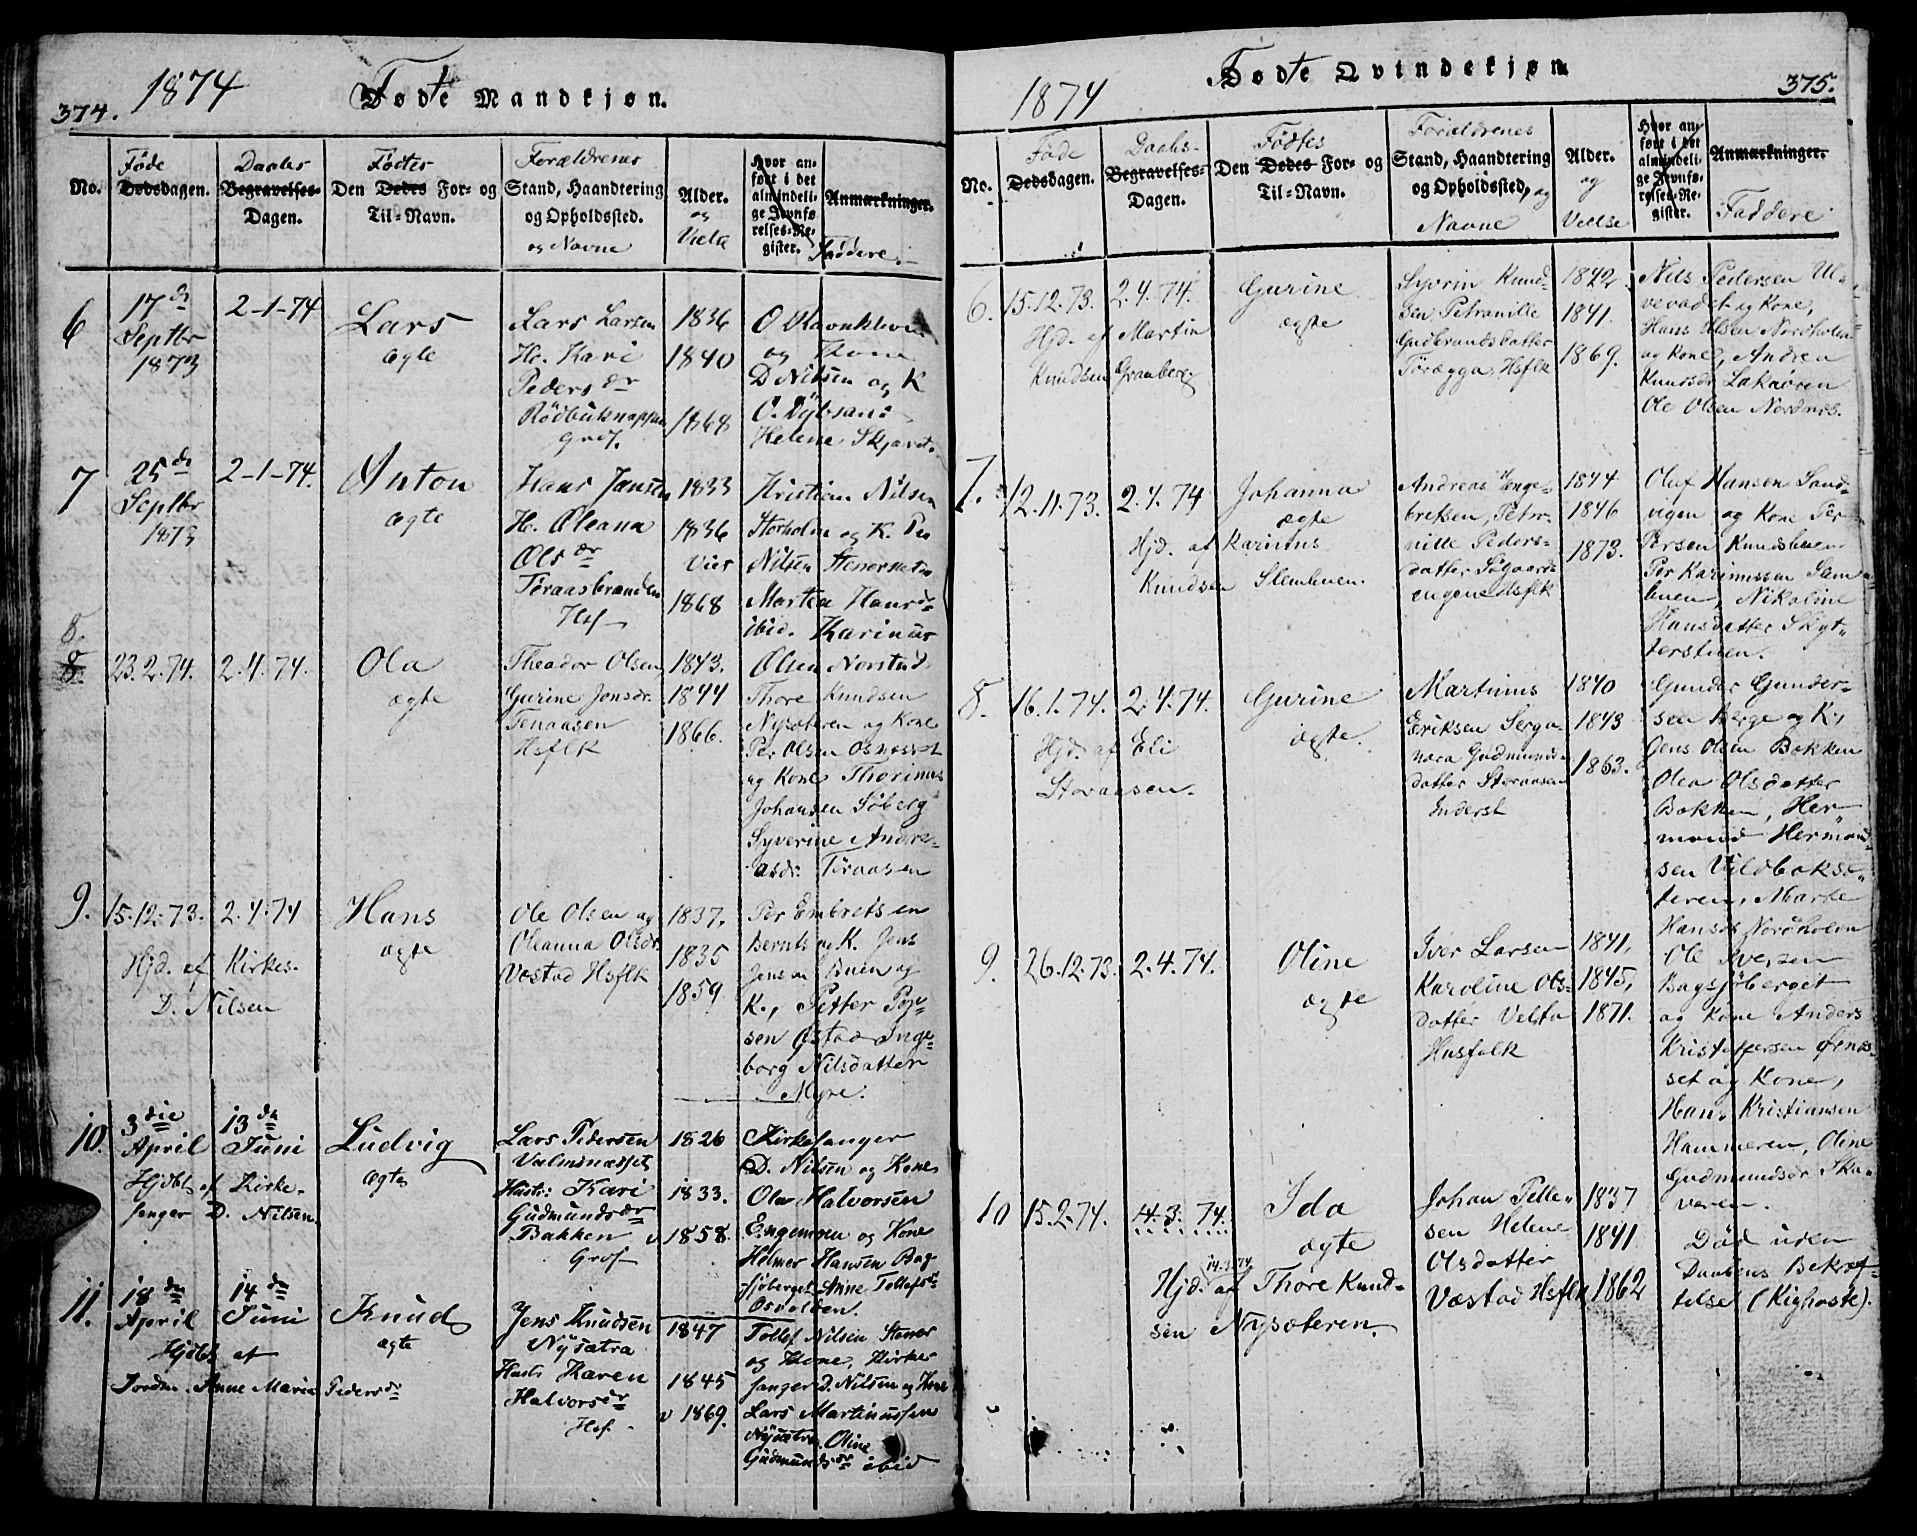 374.
1874
Fødte Mandkjøn.
No.
Føde
Dødsdagen.
Daabs
Begravelses-
Dagen.
Fødtes
Den Dødes For- og
Til-Navn.
Forældrenes
Stand, Haandtering
og Opholdssted.
og Navne
Alder.
og
Hvor an-
ført i det
almindeli-
ge Jevnfø
relses-Re-
gister.
Anmærkninger.
Faddere.
6
17de
Septbr
1873
2-1-74
Lars
ægte
Lars Larsen
H. Kari
Peders dr
1836
1840
1868
og Kone
D Nilsen og K
Helene
7
25de
Septbr
1873
2-1-74.
Anton
ægte
Hans Jansen
H. Oleana
Ols dr
Hsf
1833
1836
1868
Kristian Nilsen
Storholm og K.
Nilsen
Martea Hansdr
ibid. Karinus
Olsen Norstad
8.
8
23.2.74.
2.4.74.
Ola
ægte
Theodor Olsen
Gurine Jonsdr.
Tenaasen
Hsflk
1843.
1844
1866.
Thore Knudsen
Nysæteren og Kone
Per Olsen Osnesset
og Kone Thorinus
Johansen Søberg
Syverine Andre-
asdr.
9.
15.12.73.
2.4.74
Hjd. af Kirkes.
D. Nilsen
Hans
ægte
Ole Olsen og
Oleanna Olsdr.
Væstad Hsflk
1837.
1835
1859
Per Embretsen
Bernts og K. Jens
Jensen Buen og
K., Petter
sen Østad Inge-
borg Nilsdatter
Myre.
10.
3die
April
13de
Juni
Hjdbt af Kirke-
sanger D. Nilsen.
Ludvig
ægte
Lars Pedersen
Valmsnæsset
Hustr: Kari
Gudmundsdr
Bakken
1826
1833.
v 1858.
Kirkesanger
D. Nilsen og Kone
Olav Halvorsen
Engemoen og Kone
Helmer Hansen Bag-
sjøberget, Anne Tollefsdr
Osvolden.
11.
18de
April
14de
Juni
Hjdbt af
Jordm. Anne Marie Pedersdr
Knud
ægte
Jens Knudsen
Nysætra
Hustr Karen
Halvorsdr
Hsf.
1847
1845
v 1869.
Tollef Nilsen
og Kone, Kirke-
sanger D. Nilsen og Kone
Lars Martinussen
Nysætra, Oline
Gudmundsdr ibid
1874
Fødte Qvindekjøn
375.
No.
Føde
Dødsdagen.
Daabs-
Begravelses-
Dagen.
Fødtes
Den Dødes For- og
Til-Navn.
Forældrenes
Stand, Haandtering
og Opholdssted, og
Navne
Alder.
og
Hvor an-
ført i det
almindeli-
ge Jevnfø-
relses-Re-
gister.
Anmærkninger.
Faddere
6.
15.12.73.
2.4.74.
Hjd. af Martin
Knudsen Granberg
Gurine
ægte
Syvrin Knud-
sen Petranille
Gudbrandsdatter
Hsflk
1842.
1841.
1869.
Nils Pedersen
og Kone,
Hans Olsen Nordholm
og Kone, Andrea
Knudsdr
Ole Olsen Nordnes.
7.
12.11.73.
2.4.74
Hjd. af Karinus
Knudsen Slembuen.
Johanna
ægte
Andreas Enge-
bretsen, Petro-
nille Peders-
datter Søgaards-
engene Hsflk
1844
1846
1873.
Olaf Hansen Sand-
vigen og Kone Per
Persen Knudsbuen
Per Karinussen Slem
buen, Nikoline
Hansdatter Skyt-
terstuen.
8.
16.1.74.
2.4.74.
Hjd. af Eli
Storaasen.
Gurine
ægte.
Martinus
Eriksen
Gudmunds-
datter Storaasen
Inderst
1840
1843
1863.
Gunder Gunder-
sen Berge og K,
Jens Olsen Bakken
Olea Olsdatter
Bakken, Her-
mand Hermand-
sen Vildbakse-
teren, Marte
Hansdr Nordholm
9.
26.12.73.
2.4.74.
Oline
ægte
Iver Larsen
Karoline Ols-
datter Velta
Husfolk
1841.
1845,
1871.
Ole Iversen
Bagsjøberget
og Kone Anders
Kristoffersen Ørnæs-
set og Kone,
Hans Kristiansen
Hammeren, Oline
Gudmundsdr
10
15.2.74.
14.3.74.
14.3.74
Hjd. af Thore Knud-
sen Nysæteren.
Ida
ægte
Johan Pelle-
sen Helene
Olsdatter
Væstad Hsflk
1837
1841
1862
Død uden
Daabens Bekræf-
telse (Kighoste).